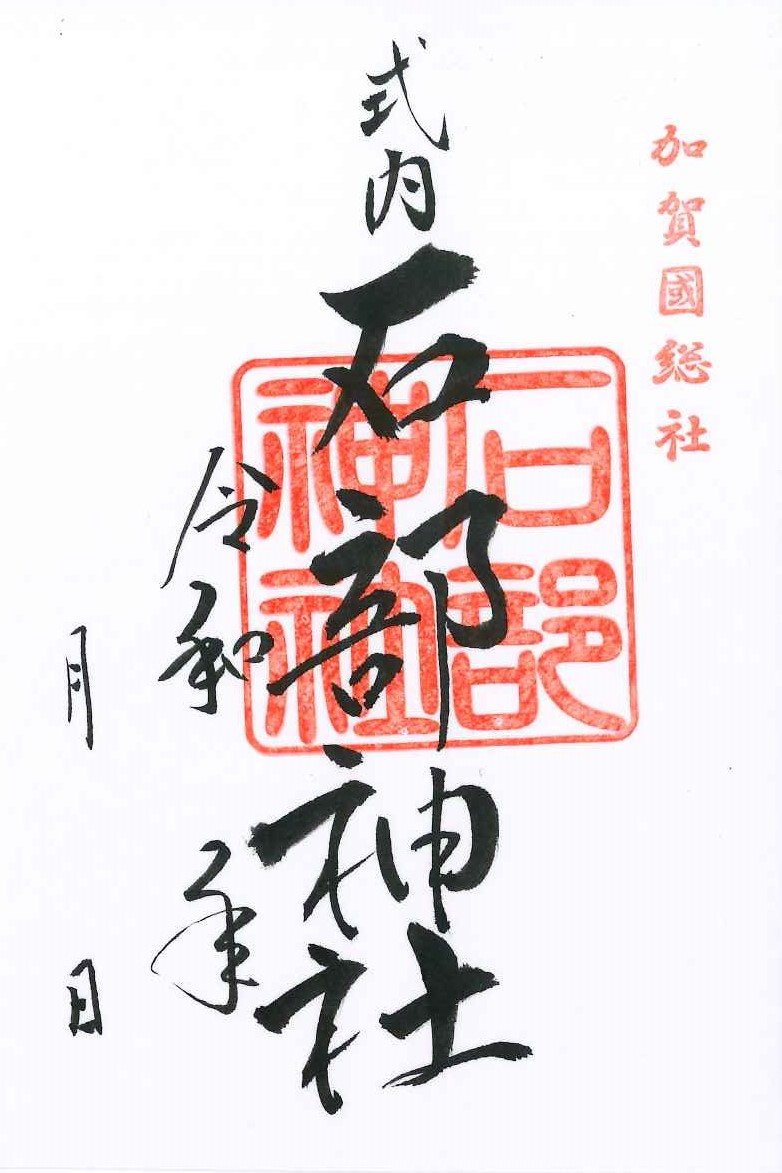 加賀國総社
式内石部神社
石部神社
令和 年
月 日